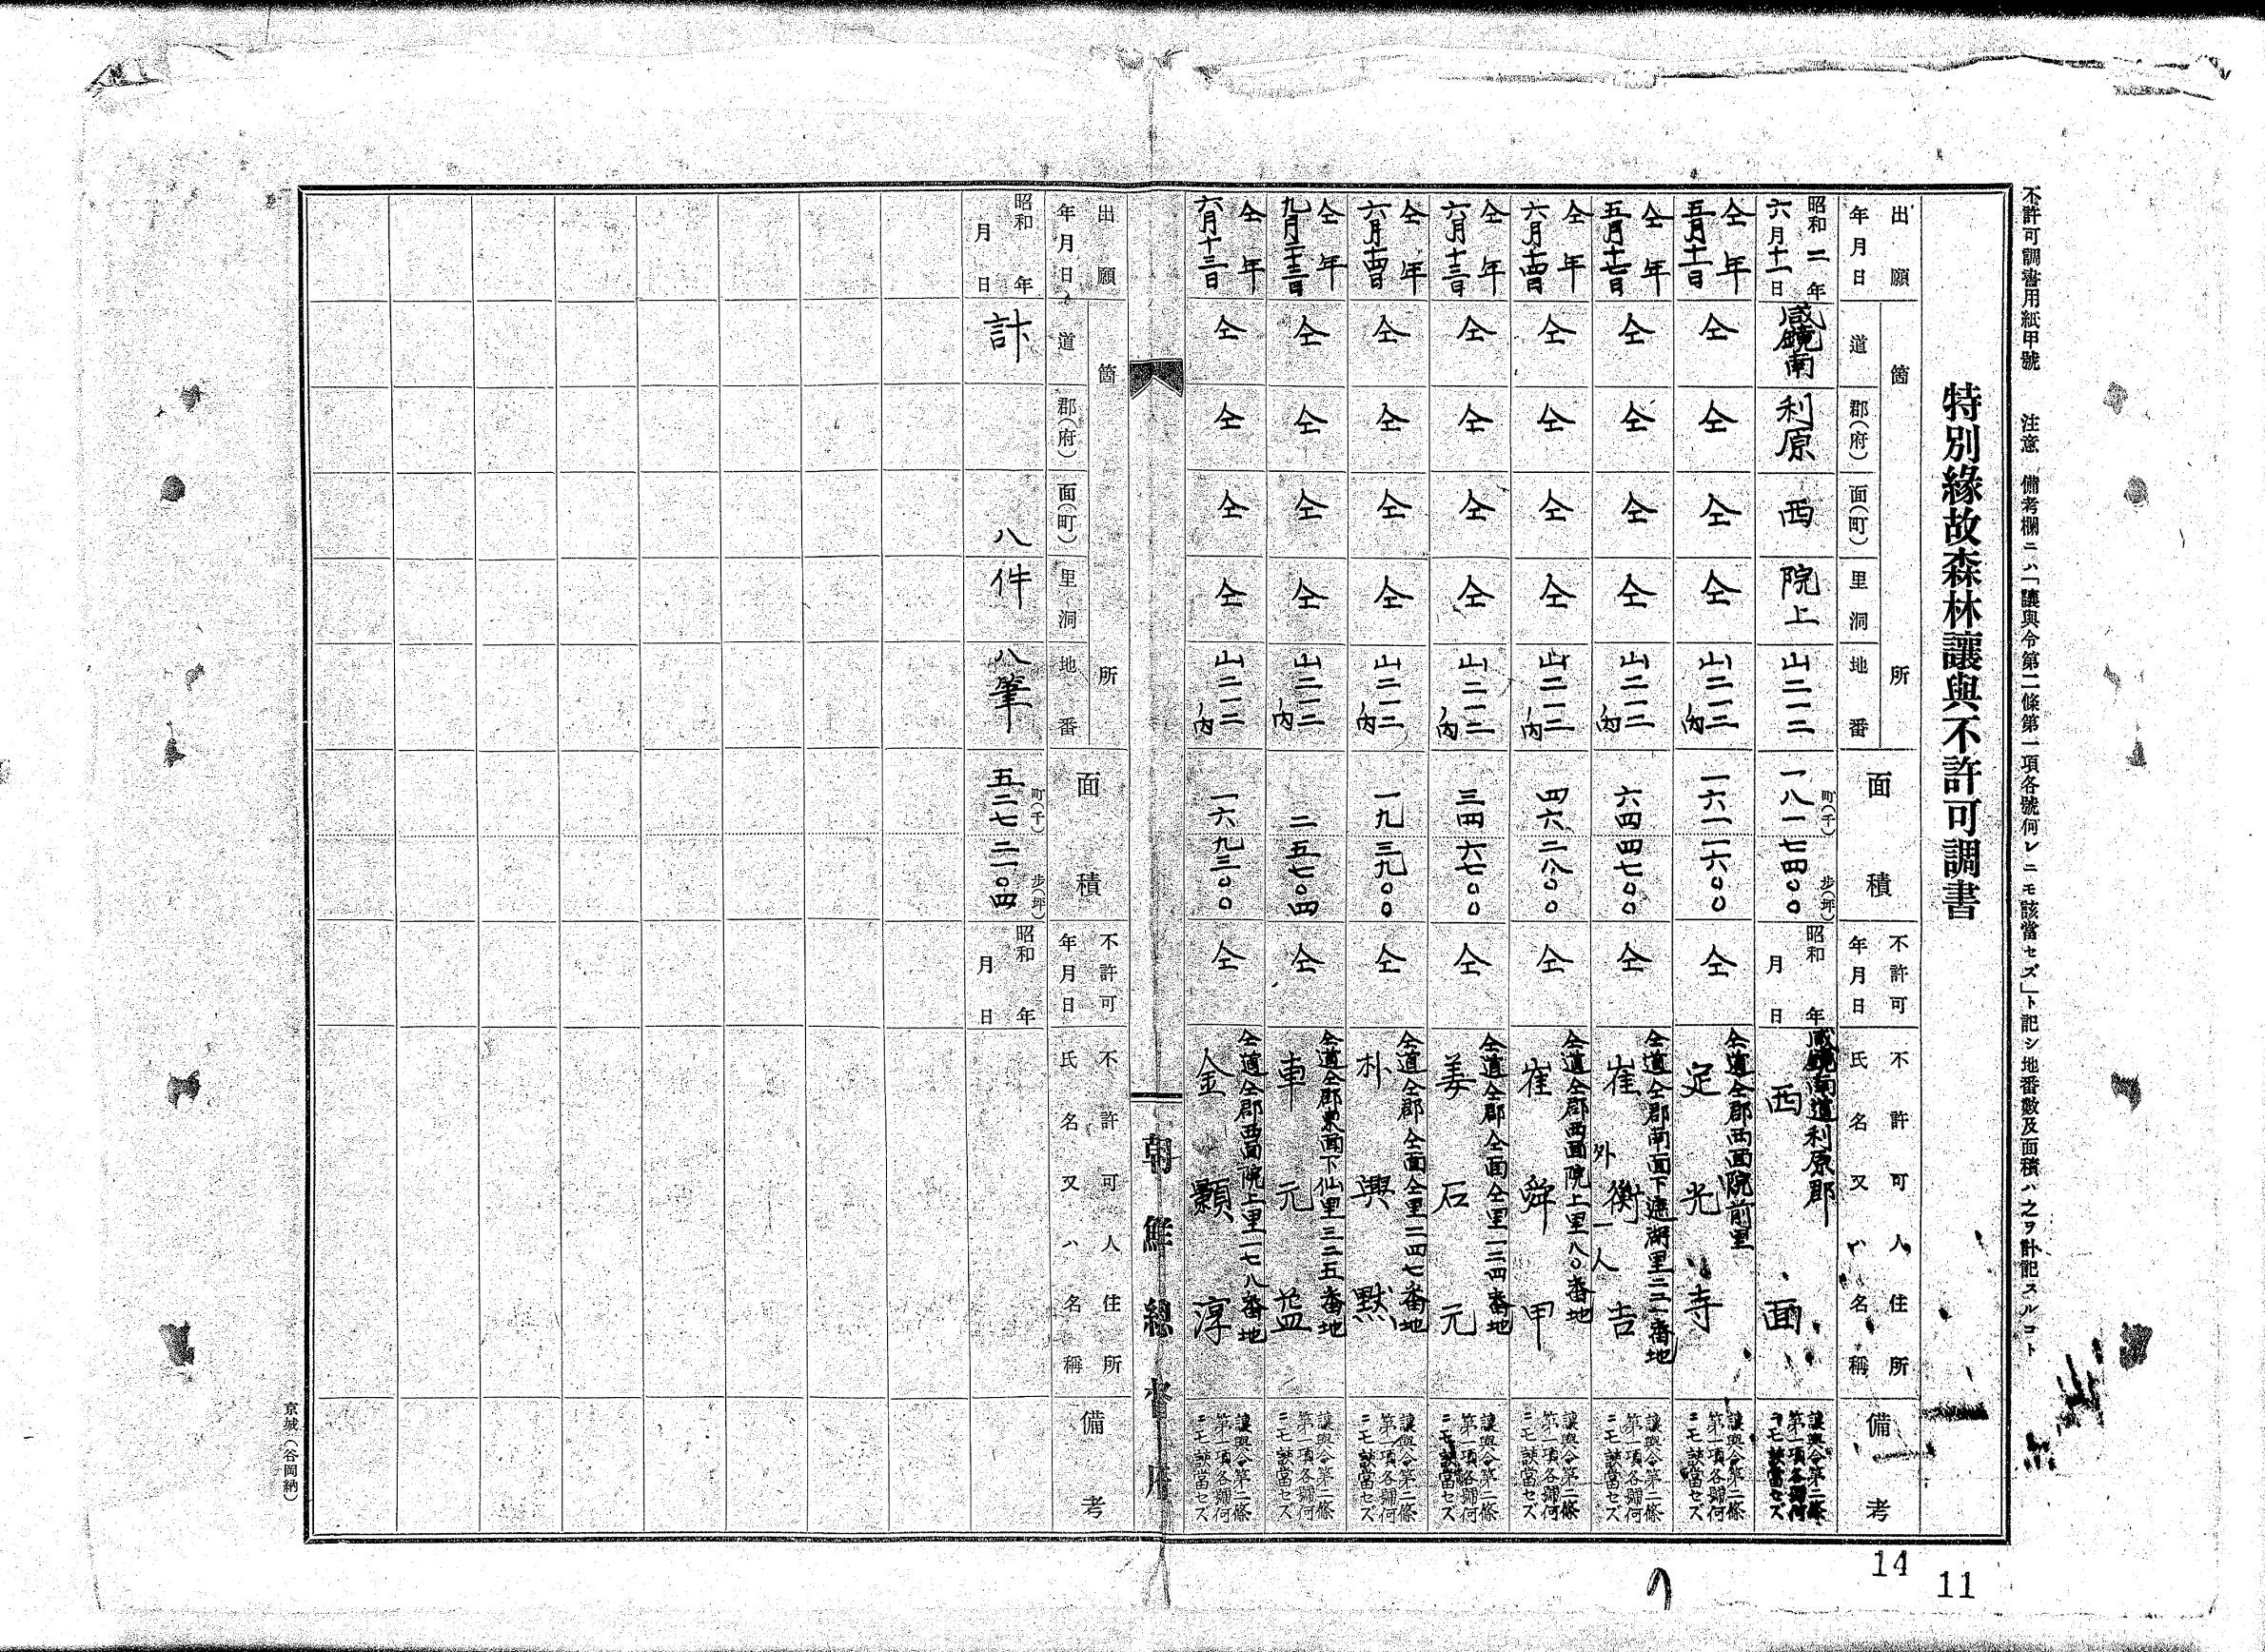 不許可調書用紙甲號　注意　備考欄ニハ「讓與令第二條第一項各號何レニモ該當セズ」ト記シ地番數及面積ハ之ヲ計記スルコト
特別緣故森林讓與不許可調書
出願年月日　箇所　道　郡(府)　面(町)　里洞　地番　面積　不許可年月日　不許可人住所氏名又ハ名稱　備考
昭和二年六月十一日　咸鏡南　利原　西　院上　山二一二　町(千)　步(坪)　一八一七四〇〇　昭和　年　月　日　咸鏡南道利原郡　西面　讓與令第二條第一項各號何ニモ該當セズ
仝年五月十一日　仝　仝　仝　仝　山二一二ノ內　一六一一六〇〇　仝　仝道仝郡西面院前里　定光寺　讓與令第二條第一項各號何ニモ該當セズ
仝年五月十七日　仝　仝　仝　仝　山二一二ノ內　六四四七〇〇　仝　仝道仝郡南面下遮湖里二二一番地　崔衡吉　外一人　讓與令第二條第一項各號何ニモ該當セズ
仝年六月十四日　仝　仝　仝　仝　山二一二ノ內　四六二八〇〇　仝　仝道仝郡西面院上里八〇番地　崔舜甲　讓與令第二條第一項各號何ニモ該當セズ
仝年六月十三日　仝　仝　仝　仝　山二一二ノ內　三四六七〇〇　仝　仝道仝郡仝面仝里一二四番地　姜石元　讓與令第二條第一項各號何ニモ該當セズ
仝年六月十四日　仝　仝　仝　仝　山二一二ノ內　一九三九〇〇　仝　仝道仝郡仝面仝里二四七番地　朴興默　讓與令第二條第一項各號何ニモ該當セズ
仝年九月二十三日　仝　仝　仝　仝　山二一二ノ內　二五七〇四　仝　仝道仝郡東面下仙里三二五番地　車元益　讓與令第二條第一項各號何ニモ該當セズ
仝年六月十三日　仝　仝　仝　仝　山二一二ノ內　一六九三〇〇　仝　仝道仝郡西面院上里一七八番地　金顯淳　讓與令第二條第一項各號何ニモ該當セズ
朝鮮總督府
出願年月日　箇所　道　郡(府)　面(町)　里洞　地番　面積　不許可年月日　不許可人住所氏名又ハ名稱　備考
昭和　年　月　日　計　八件　八筆　町(千)　步(坪)　五二七二一〇四　昭和　年　月　日
京城(谷岡納)
14
11